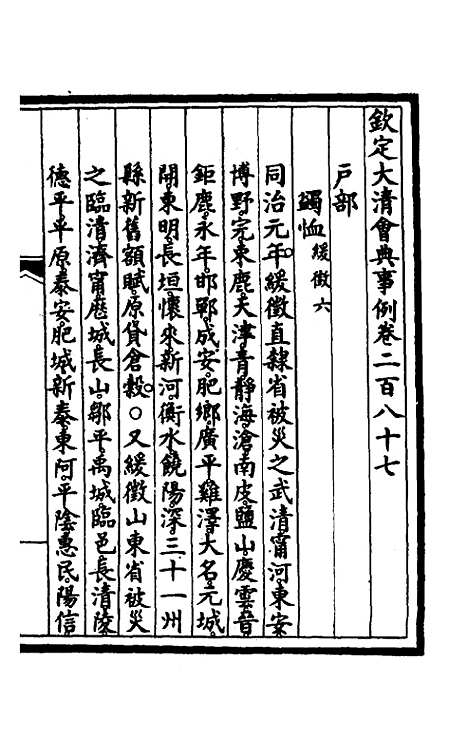 欽定大清會典事例卷二百八十七
戶部
蠲恤緩徵六
同治元年緩徵直隸省被災之武清甯河東安
博野完束鹿天津青靜海滄南皮鹽山慶雲晉
鉅鹿永年邯鄲成安肥鄉廣平雞澤大名元城
開東明長垣懷來新河衡水饒陽深三十一州
縣新舊額賦原貸倉穀○又緩徵山東省被災
之臨清濟甯歷城長山鄒平禹城臨邑長清陵
德平平原泰安肥城新泰東阿平陰惠民陽信